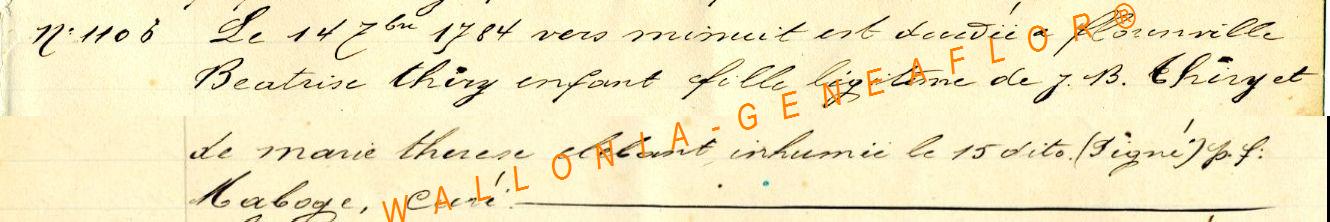 N° 1106 Le 14 7bre 1784 vers minuit est décédée a florenville
Beatrise thiry enfant fille légitime de j. B. Thiry et
de marie therese inhumée le 15 dito. (Signé) p. f.
Maboge, Curé.
WALLONIA-GENEAFLOR®